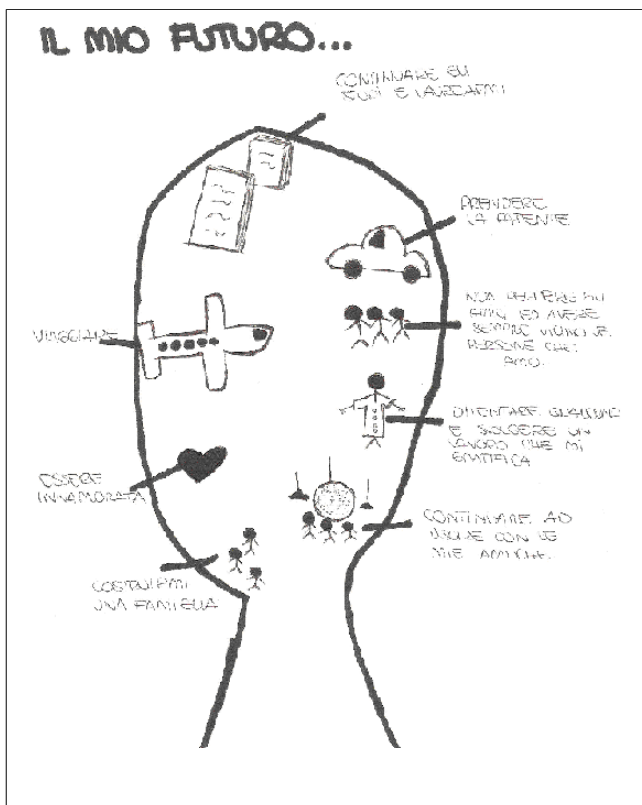 IL MIO FUTURO...
CONTINUARE GLI
STUDI E LAUREARMI
PRENDERE
LA PATENTE
VIAGGIARE
NON PERDERE
ED AVERE
SEMPRE VICINO LE
PERSONE CHE
AMO.
DIVENTARE
E SVOLGERE UN
LAVORO CHE MI
GRATIFICA
ESSERE
INNAMORATA
CONTINUARE AD
CON LE
MIE AMICHE.
COSTRUIRMI
UNA FAMIGLIA